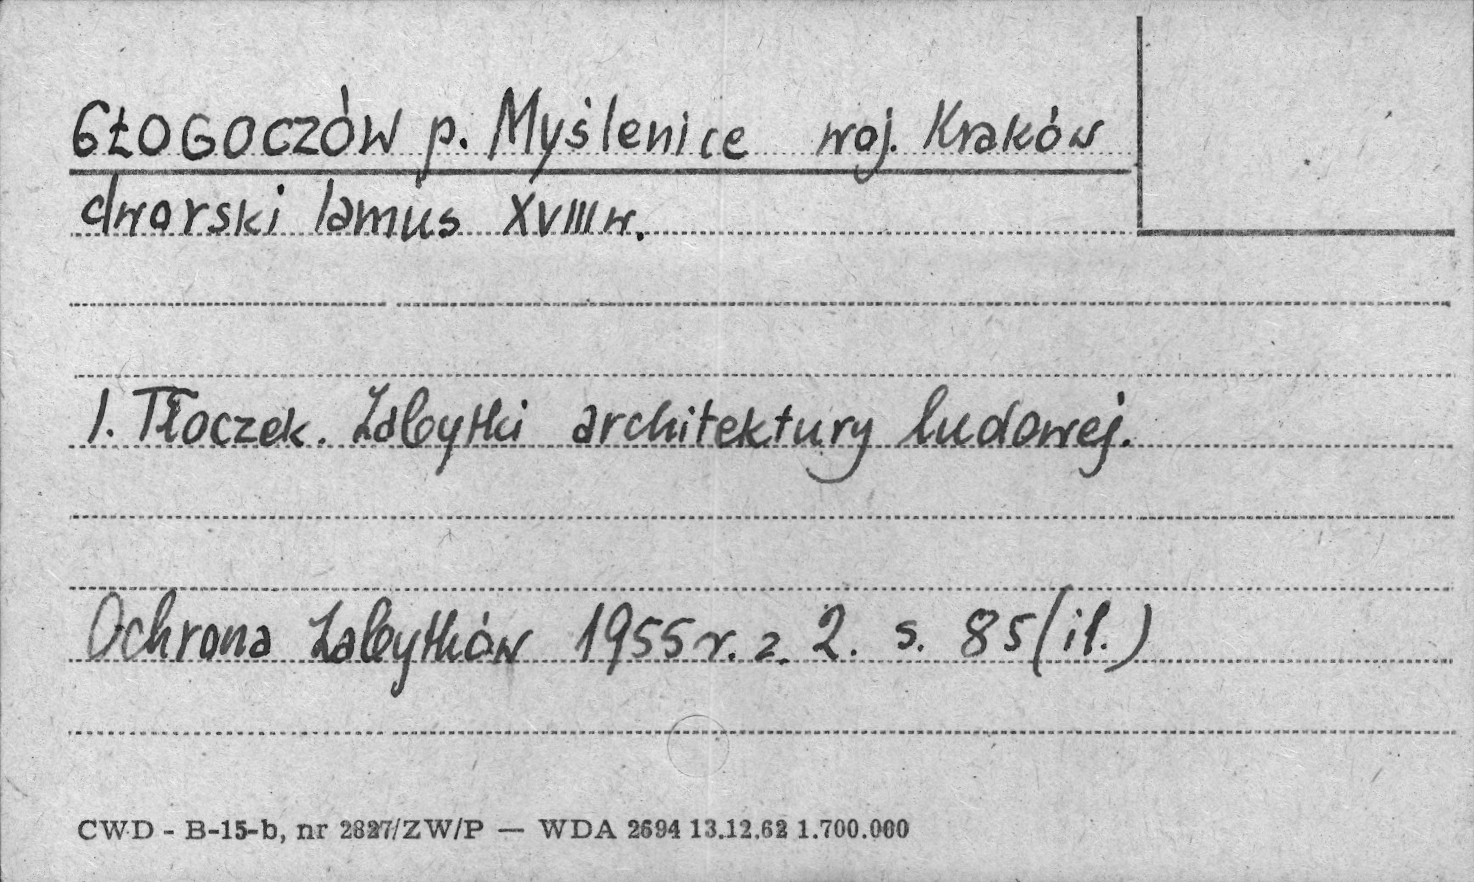 GŁOGOCZÓW p. Myślenice woj. Kraków
dworski lamus XVIII w.
I. Tłoczek. Zabytki architektury ludowej.
Ochrona Zabytków 1955 r. z. 2. s. 85 (il.)
CWD - B-15-b, nr 2827/ZW/P — WDA 2694 13.12.62 1.700.000